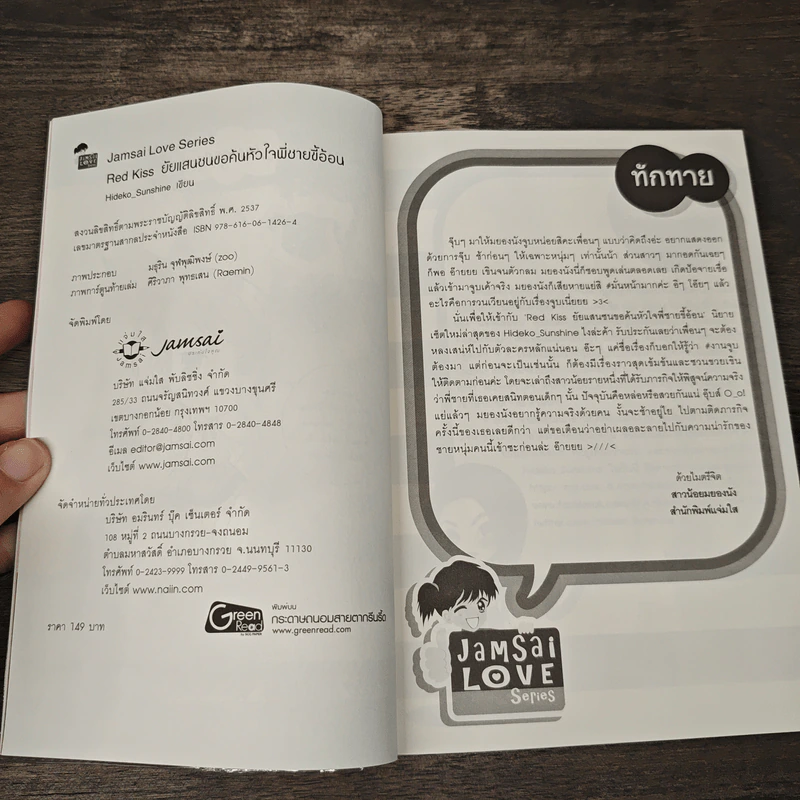 Jamsai Love Series
Red Kiss ยัยแสนซนขอค้นหัวใจพี่ชายขี้อ้อน
Hideko_Sunshine เขียน
สงวนลิขสิทธิ์ตามพระราชบัญญัติลิขสิทธิ์ พ.ศ. 2537
เลขมาตรฐานสากลประจำหนังสือ ISBN 978-616-06-1426-4
ภาพประกอบ มธุริน จุฬพุฒิพงษ์ (zoo)
ภาพการ์ตูนท้ายเล่ม ศิริวาภา พุทธเสน (Raemin)
จัดพิมพ์โดย
Jamsai
บริษัท แจ่มใส พับลิชชิ่ง จำกัด
285/33 ถนนจรัญสนิทวงศ์ แขวงบางขุนศรี
เขตบางกอกน้อย กรุงเทพฯ 10700
โทรศัพท์ 0-2840-4800 โทรสาร 0-2840-4848
อีเมล editor@jamsai.com
เว็บไซต์ www.jamsai.com
จัดจำหน่ายทั่วประเทศโดย
บริษัท อมรินทร์ บุ๊ค เซ็นเตอร์ จำกัด
108 หมู่ที่ 2 ถนนบางกรวย-จงถนอม
ตำบลมหาสวัสดิ์ อำเภอบางกรวย จ.นนทบุรี 11130
โทรศัพท์ 0-2423-9999 โทรสาร 0-2449-9561-3
เว็บไซต์ www.naiin.com
ราคา 149 บาท
Green Read
พิมพ์บน
กระดาษถนอมสายตากรีนรี้ด
www.greenread.com
ทักทาย
จุ๊บๆ มาให้มยองนังจูบหน่อยสิคะเพื่อนๆ แบบว่าคิดถึงอ่ะ อยากแสดงออก
ด้วยการจุ๊บ ช้าก่อนๆ ให้เฉพาะหนุ่มๆ เท่านั้นน้า ส่วนสาวๆ มากอดกันเฉยๆ
ก็พอ อ๊ายยย เขินจนตัวกลม มยองนังนี่ก็ชอบพูดเล่นตลอดเลย เกิดป๋อจายเชื่อ
แล้วเข้ามาจูบเค้าจริง มยองนังก็เสียหายแย่สิ #มั่นหน้ามากค่ะ อิๆ โอ๊ยๆ แล้ว
อะไรคือการวนเวียนอยู่กับเรื่องจูบเนี่ยยย >3<
นั่นเพื่อให้เข้ากับ 'Red Kiss ยัยแสนซนขอค้นหัวใจพี่ชายขี้อ้อน' นิยาย
เซ็ตใหม่ล่าสุดของ Hideko_Sunshine ไงล่ะค้า รับประกันเลยว่าเพื่อนๆ จะต้อง
หลงเสน่ห์ไปกับตัวละครหลักแน่นอน อ๊ะๆ แค่ชื่อเรื่องก็บอกให้รู้ว่า #งานจูบ
ต้องมา แต่ก่อนจะเป็นเช่นนั้น ก็ต้องมีเรื่องราวสุดเข้มข้นและชวนขวยเขิน
ให้ติดตามก่อนค่ะ โดยจะเล่าถึงสาวน้อยรายหนึ่งที่ได้รับภารกิจให้พิสูจน์ความจริง
ว่าพี่ชายที่เธอเคยสนิทตอนเด็กๆ นั้น ปัจจุบันคือหล่อหรือสวยกันแน่ อุ๊บส์ O_o!
แย่แล้วๆ มยองนังอยากรู้ความจริงด้วยคน งั้นจะช้าอยู่ไย ไปตามติดภารกิจ
ครั้งนี้ของเธอเลยดีกว่า แต่ขอเตือนว่าอย่าเผลอละลายไปกับความน่ารักของ
ชายหนุ่มคนนี้เข้าซะก่อนล่ะ อ๊ายยย >///<
ด้วยไมตรีจิต
สาวน้อยมยองนัง
สำนักพิมพ์แจ่มใส
Jamsai
LOVE
Series